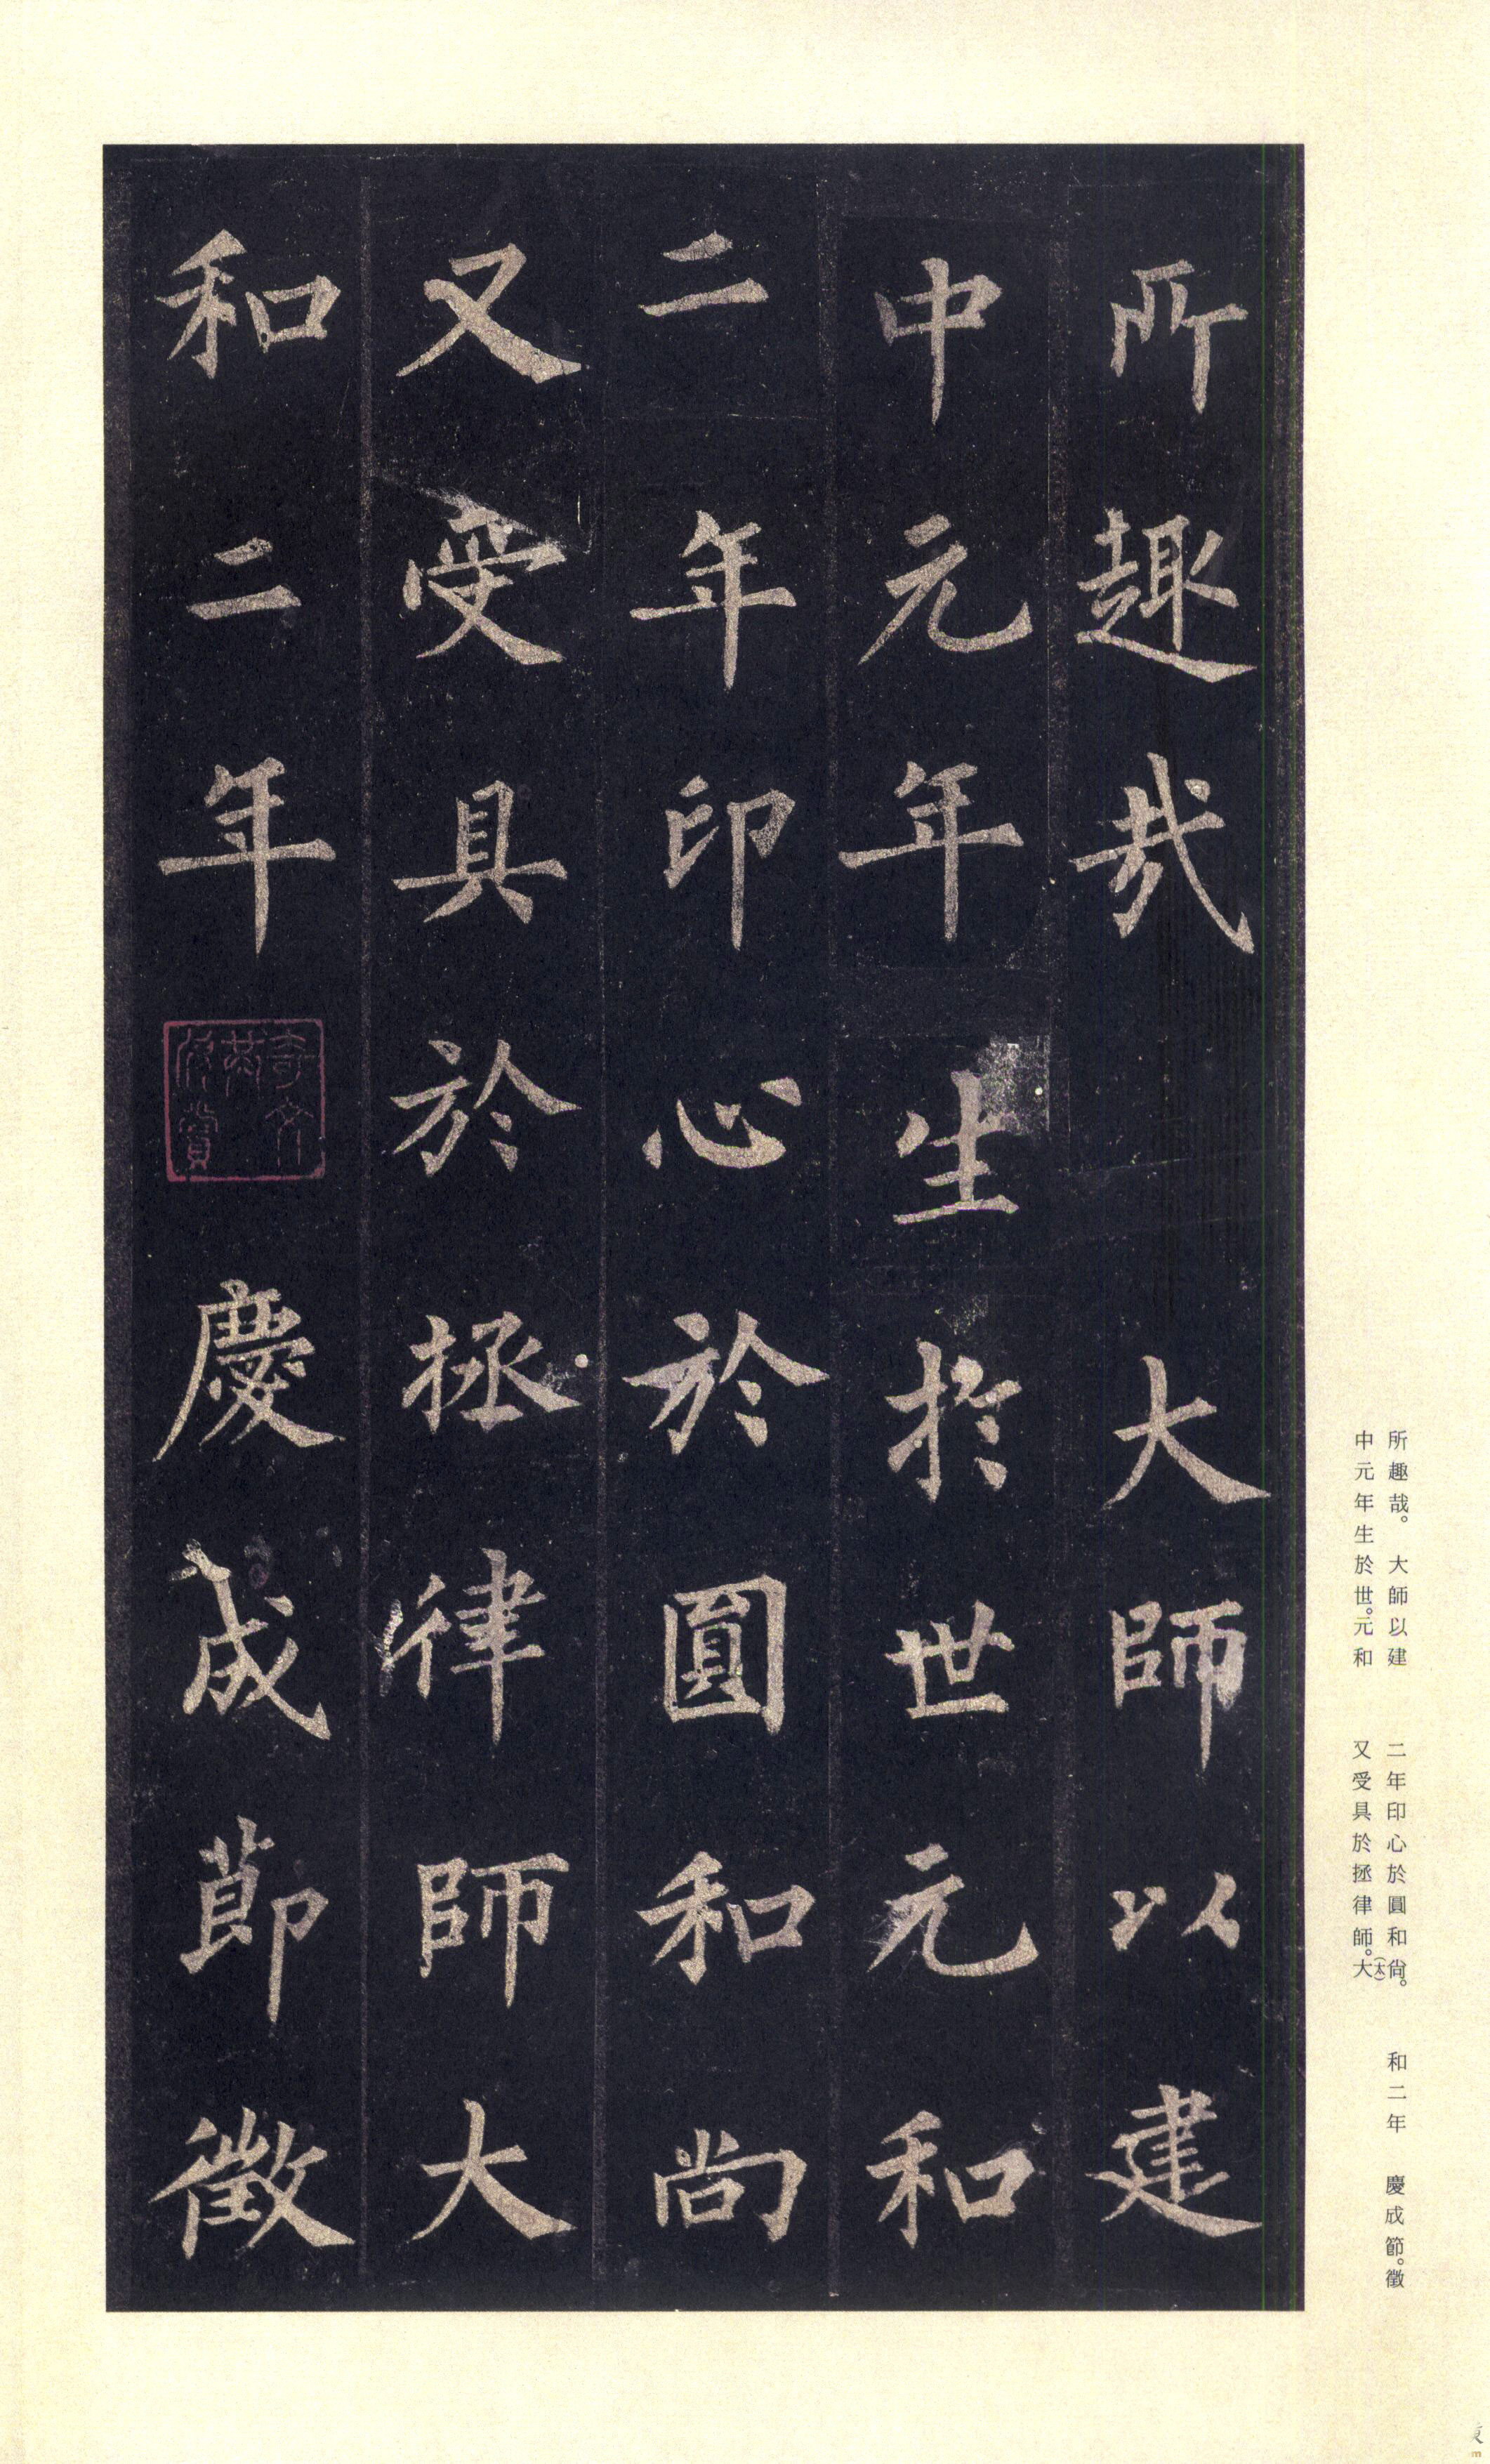 所趣哉 大師以建
中元年生於世元和
二年印心於圓和尚
又受具於拯律師大
和二年 慶成節徵
奇文共欣賞
所趣哉。 大師以建
中元年生於世。元和
二年印心於圓和尚。
又受具於拯律師。大(太)
和二年 慶成節。徵